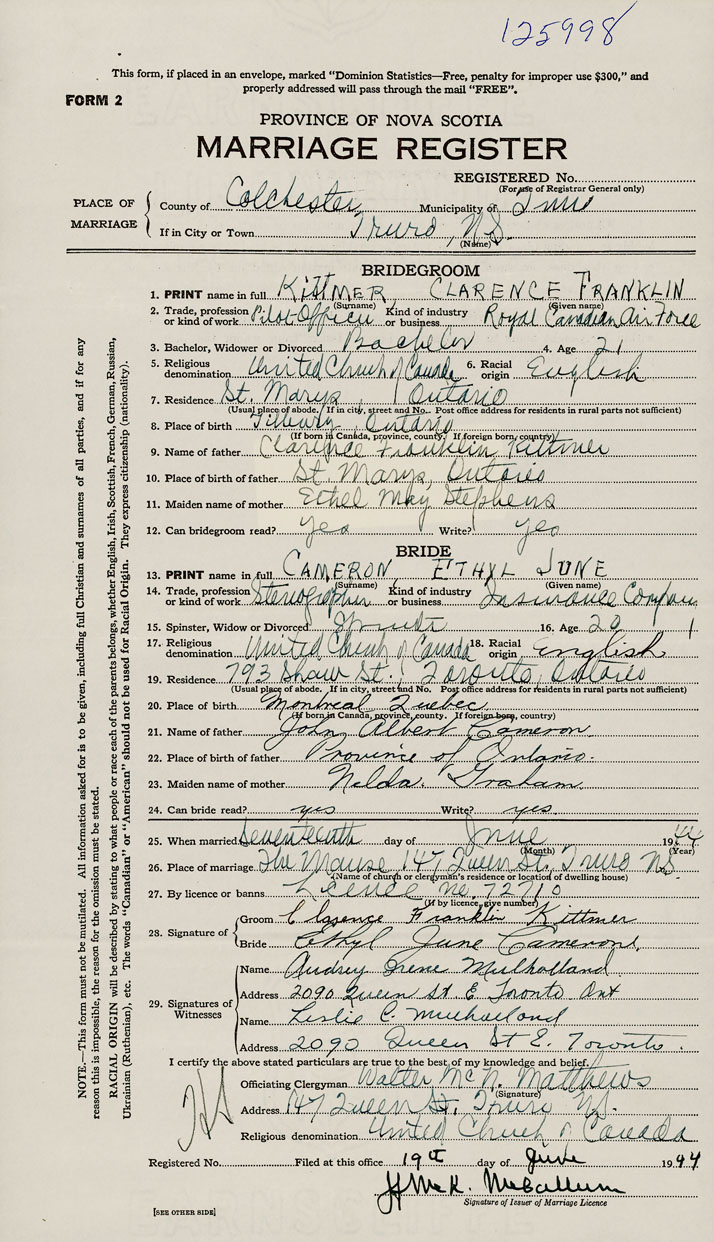 125998
This form, if placed in an envelope, marked "Dominion Statistics—Free, penalty for improper use $300," and
properly addressed will pass through the mail "FREE".
FORM 2
PROVINCE OF NOVA SCOTIA
MARRIAGE REGISTER
REGISTERED No.
(For use of Registrar General only)
PLACE OF MARRIAGE
County of Colchester Municipality of
If in City or Town Truro, N.S.
(Name)
BRIDEGROOM
1. PRINT name in full KITTMER CLARENCE FRANKLIN
(Surname) (Given name)
2. Trade, profession or kind of work Pilot Officer Kind of industry or business Royal Canadian Air Force
3. Bachelor, Widower or Divorced Bachelor 4. Age 21
5. Religious denomination United Church of Canada 6. Racial origin English
7. Residence St. Marys, Ontario
(Usual place of abode. If in city, street and No. Post office address for residents in rural parts not sufficient)
8. Place of birth Tilbury, Ontario
(If born in Canada, province, county. If foreign born, country)
9. Name of father Clarence Franklin Kittmer
10. Place of birth of father St. Marys, Ontario
11. Maiden name of mother Ethel May Stephens
12. Can bridegroom read? Yes Write? Yes
BRIDE
13. PRINT name in full CAMERON ETHYL JUNE
(Surname) (Given name)
14. Trade, profession or kind of work Stenographer Kind of industry or business Insurance Company
15. Spinster, Widow or Divorced Spinster 16. Age 20
17. Religious denomination United Church of Canada 18. Racial origin English
19. Residence 793 Shaw St., Toronto, Ontario
(Usual place of abode. If in city, street and No. Post office address for residents in rural parts not sufficient)
20. Place of birth Montreal Quebec
(If born in Canada, province, county. If foreign born, country)
21. Name of father John Albert Cameron
22. Place of birth of father Province of Ontario.
23. Maiden name of mother Nelda Graham
24. Can bride read? yes Write? yes.
25. When married Seventeenth day of June 1944
(Month) (Year)
26. Place of marriage The Manse 147 Queen St., Truro N.S.
(Name of church or clergyman's residence or location of dwelling house)
27. By licence or banns Licence No. 72710
(If by licence, give number)
28. Signature of
Groom Clarence Franklin Kittmer
Bride Ethyl June Cameron.
29. Signatures of Witnesses
Name Audrey Irene Mulholland
Address 2090 Queen St. E Toronto Ont
Name Leslie C. Mulholland
Address 2090 Queen St E. Toronto.
I certify the above stated particulars are true to the best of my knowledge and belief.
Officiating Clergyman Walter McN. Matthews
(Signature)
Address 147 Queen St., Truro N.S.
Religious denomination United Church of Canada
Registered No. Filed at this office 19th day of June 1944
McK. McCallum
Signature of Issuer of Marriage Licence
[SEE OTHER SIDE]
NOTE.—This form must not be mutilated. All information asked for is to be given, including full Christian and surnames of all parties, and if for any
reason this is impossible, the reason for the omission must be stated.
RACIAL ORIGIN will be described by stating to what people or race each of the parents belongs, whether English, Irish, Scottish, French, German, Russian,
Ukrainian (Ruthenian), etc. The words "Canadian" or "American" should not be used for Racial Origin. They express citizenship (nationality).